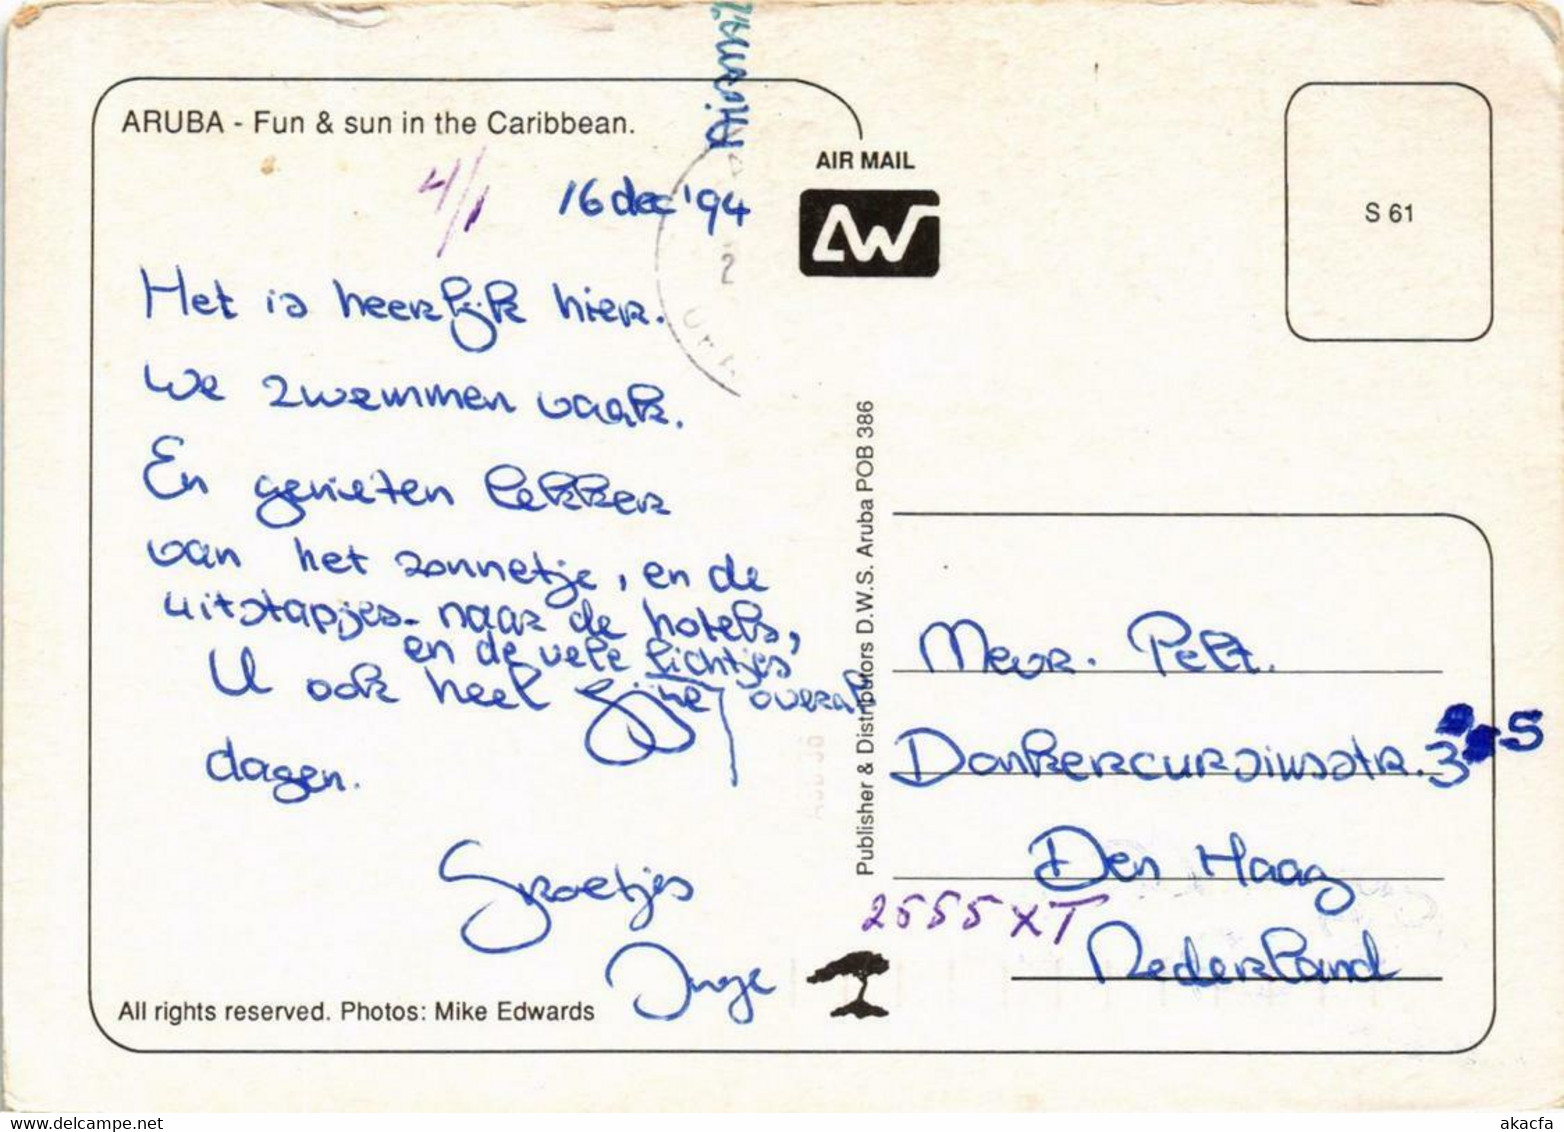 ARUBA - Fun & sun in the Caribbean.
Airmail
AIR MAIL
AW
S 61
4/1
16 dec '94
2
Het is heerlijk hier.
We zwemmen vaak.
En genieten lekker
van het zonnetje, en de
uitstapjes naar de hotels,
en de vele lichtjes
overal
U ook heel fijne
dagen.
Groetjes
Inge
All rights reserved. Photos: Mike Edwards
Publisher & Distributors D.W.S. Aruba POB 386
Mevr. Pelt.
Donkercursiusstr. 3 S
Den Haag
2555 XT
Nederland
delcampe.net
akacfa